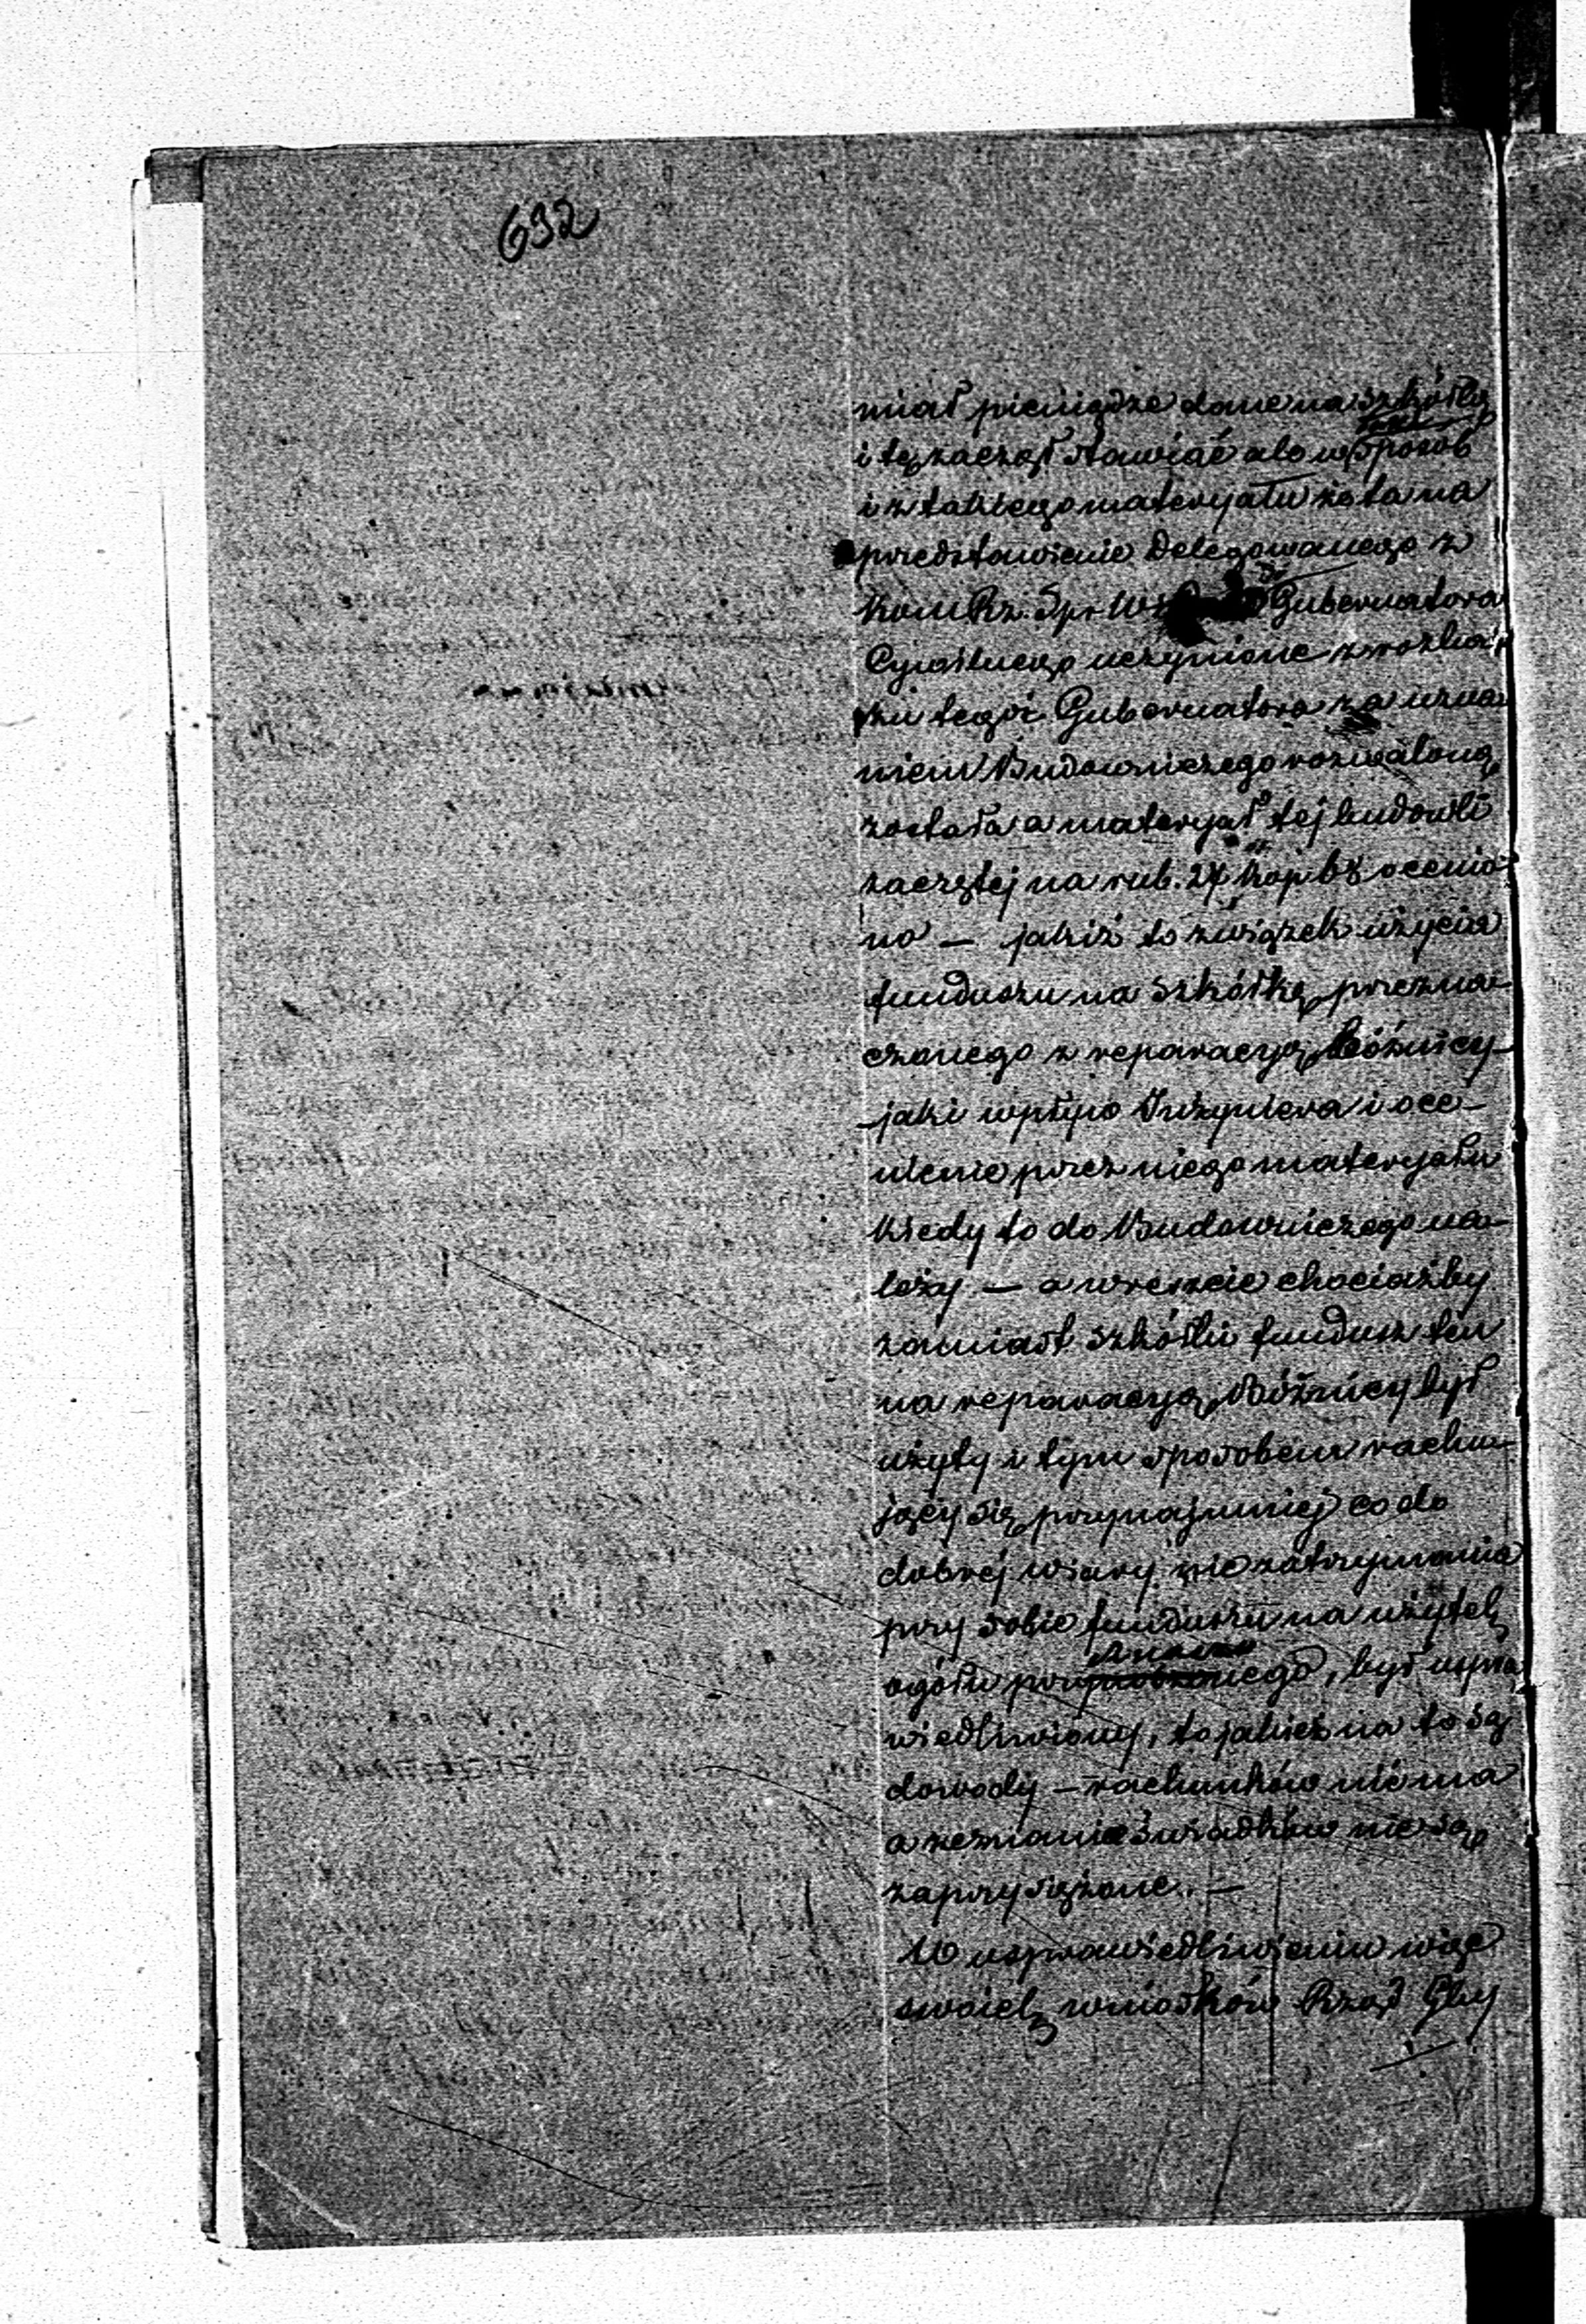 632
miał pieniądze dane na szkółkę
i tę zaczął stawiać ale w taki sposób
i z takiego materyału że ta na
przedstawienie Delegowanego z
Kom Rz. Spr. W. do Gubernatora
Cywilnego uczynione z rozka-
zu tegoż Gubernatora za uzna-
niem Budowniczego rozwaloną
została a materyał tej budowli
zaczętej na rub. 27 kop 68 ocenio-
no — jakiż to związek użycia
funduszu na szkółkę przezna-
czonego z reparacyą Bóżnicy
jaki wpływ Inżyniera i oce-
nienie przez niego materyału
kiedy to do Budowniczego na-
leży — a wreszcie chociażby
zamiast szkółki fundusz ten
na reparacyą Bóżnicy był
użyty i tym sposobem rachu-
jący się przynajmniej co do
dobrej wiary nie zatrzymania
przy sobie funduszu na użytek
ogółu, był uspra-
wiedliwiony, to jakież na to są
dowody — rachunków niéma
a zeznania świadków nie są
zaprzysiężone. —
W usprawiedliwieniu więc
swoich wniosków Rząd Gby